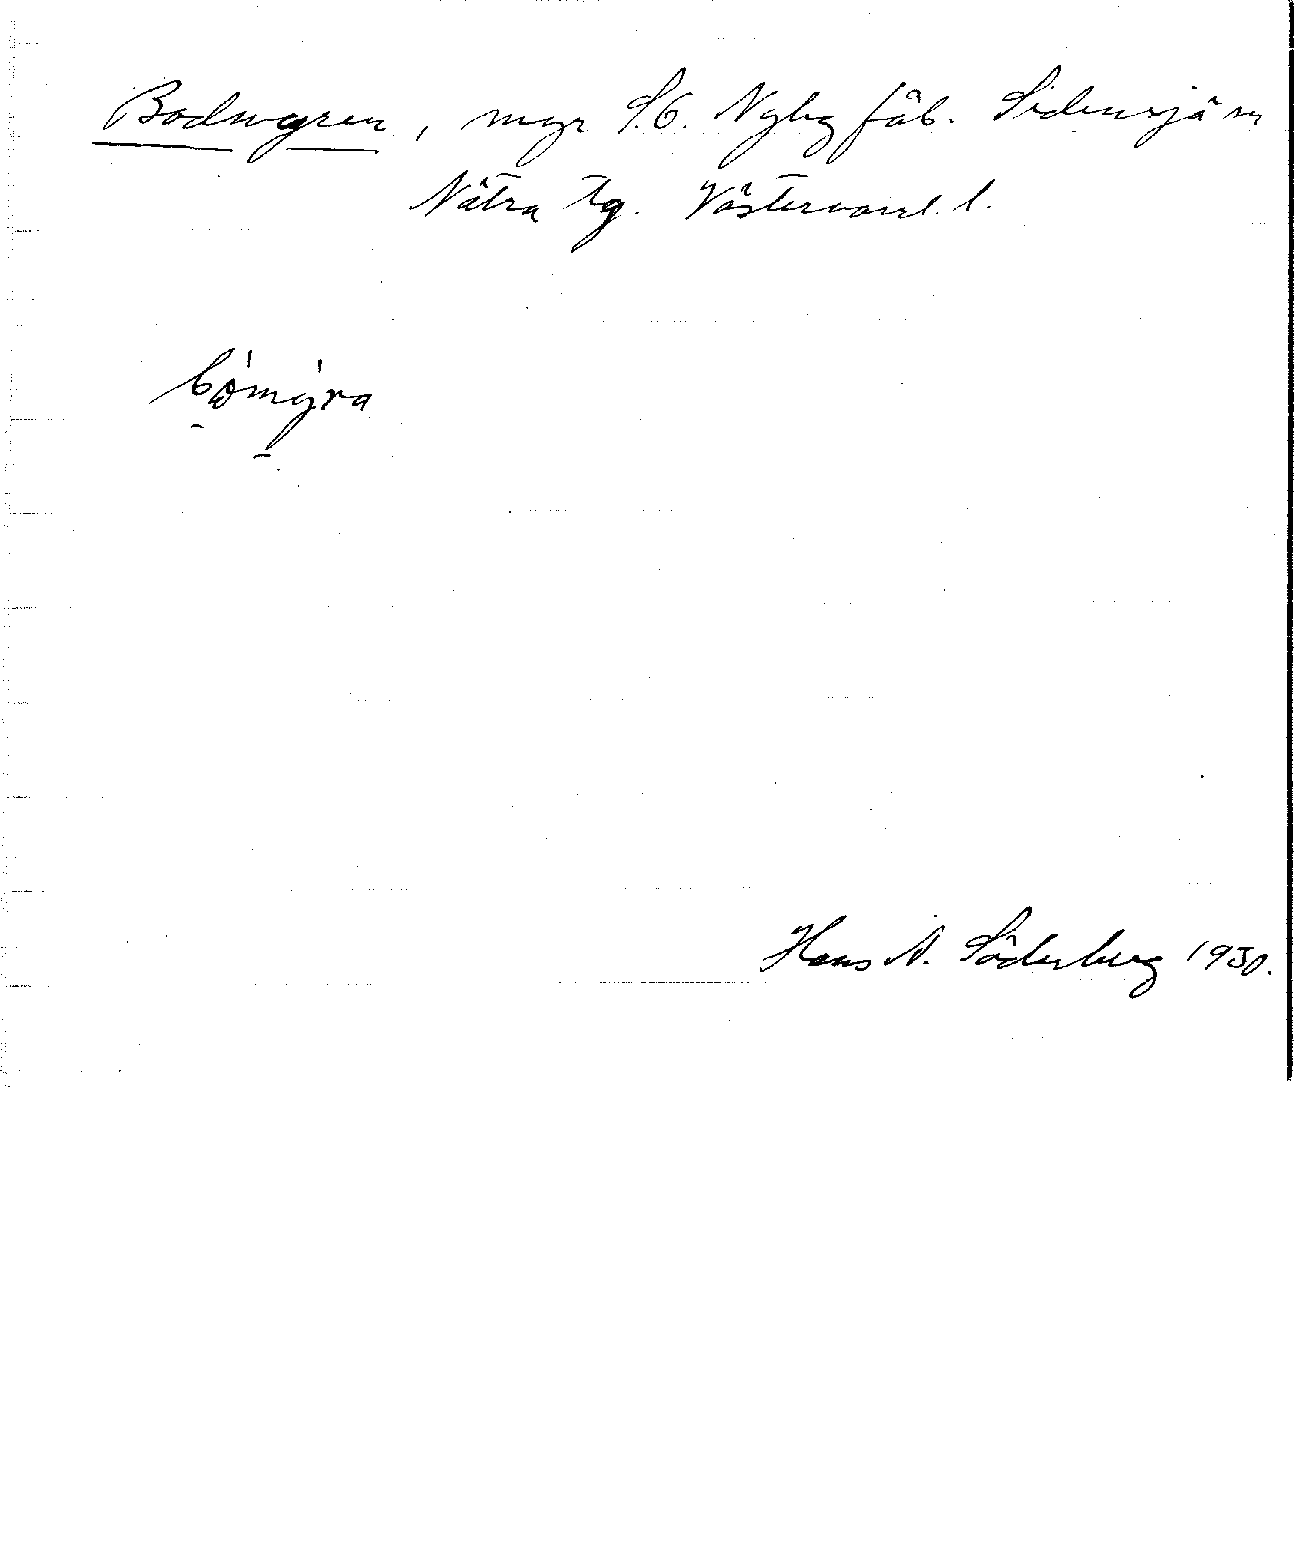 Bodmyren, myr S.G. Nyby fäb. Sidensjö sn
Nätra tg. Västernorrl. l.
Hans N. Söderberg 1930.